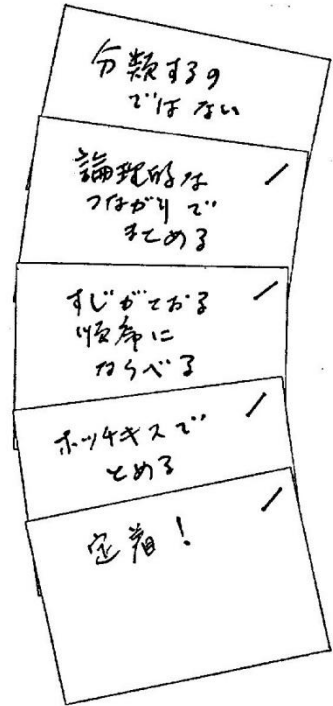 分類するの
ではない
論理的な
つながりで
まとめる
すじがとおる
順序に
ならべる
ホッチキスで
とめる
定着！